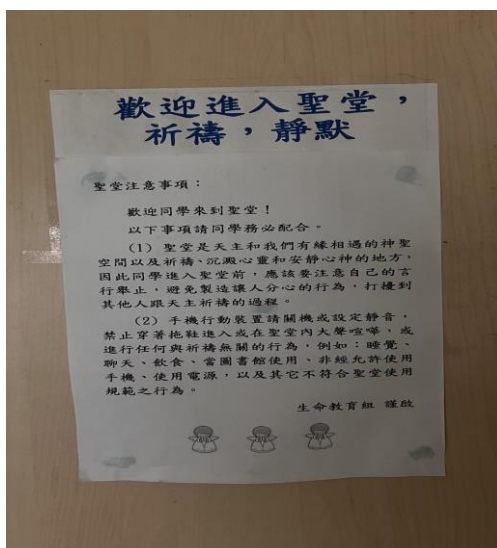 歡迎進入聖堂，
祈禱，靜默
聖堂注意事項：
歡迎同學來到聖堂！
以下事項請同學務必配合。
(1) 聖堂是天主和我們有緣相遇的神聖
空間以及祈禱、沉澱心靈和安靜心神的地方，
因此同學進入聖堂前，應該要注意自己的言
行舉止，避免製造讓人分心的行為，打擾到
其他人跟天主祈禱的過程。
(2) 手機行動裝置請關機或設定靜音，
禁止穿著拖鞋進入或在聖堂內大聲喧嘩，或
進行任何與祈禱無關的行為，例如：睡覺、
聊天、飲食、當圖書館使用、非經允許使用
手機、使用電源，以及其它不符合聖堂使用
規範之行為。
生命教育組 謹啟